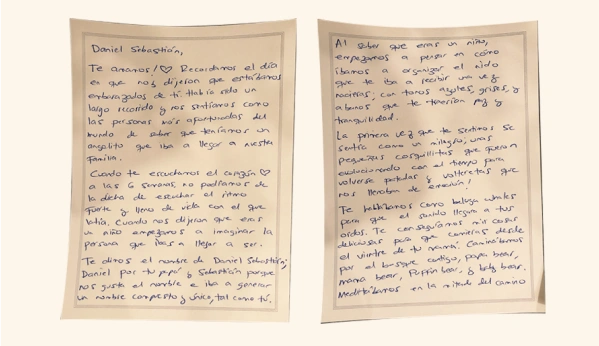 Daniel Sebastián,
Te amamos! ♡ Recordamos el día
en que nos dijeron que estábamos
embarazados de ti. Había sido un
largo recorrido y nos sentíamos como
las personas más afortunadas del
mundo de saber que teníamos un
angelito que iba a llegar a nuestra
familia.
Cuando te escuchamos el corazón ♡
a las 6 semanas, no podíamos de
la dicha de escuchar el ritmo
fuerte y lleno de vida con el que
latía. Cuando nos dijeron que eras
un niño empezamos a imaginar la
persona que ibas a llegar a ser.
Te dimos el nombre de Daniel Sebastián;
Daniel por tu papá y Sebastián porque
nos gusta el nombre e iba a generar
un nombre compuesto y único, tal como tú.
Al saber que eras un niño,
empezamos a pensar en cómo
íbamos a organizar el nido
que te iba a recibir una vez
nacieras; con tonos azules, grises, y
blancos que te traerían paz y
tranquilidad.
La primera vez que te sentimos se
sentía como un milagro; unas
pequeñas cosquillitas que fueron
evolucionando con el tiempo para
volverse patadas y volteretas que
nos llenaban de emoción!
Te hablábamos como beluga whales
para que el sonido llegara a tus
oídos. Te conseguíamos mis cosas
deliciosas para que comieras desde
el vientre de tu mamá. Caminábamos
por el bosque contigo, papa bear,
mama bear, Puppin bear, y baby bear.
Meditábamos en la mitad del camino